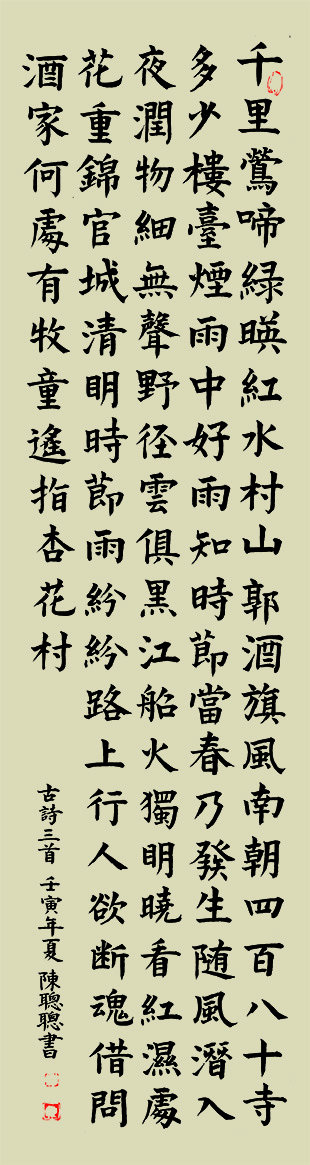 千里鶯啼綠暎紅水村山郭酒旗風南朝四百八十寺
多少樓臺煙雨中好雨知時節當春乃發生随風潛入
夜潤物細無聲野径雲俱黑江船火獨明曉看紅濕處
花重錦官城清明時節雨紛紛路上行人欲断魂借問
酒家何處有牧童遙指杏花村
古詩三首 壬寅年夏 陳聰聰書